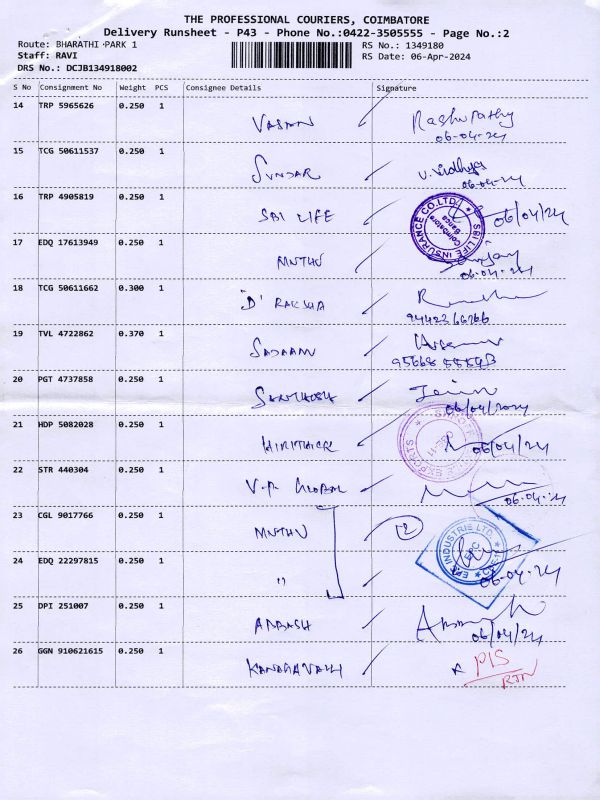 THE PROFESSIONAL COURIERS, COIMBATORE
Delivery Runsheet - P43 - Phone No.:0422-3505555 - Page No.:2
Route: BHARATHI PARK 1
RS No.: 1349180
Staff: RAVI
RS Date: 06-Apr-2024
DRS No.: DCJB134918002
S No Consignment No Weight PCS Consignee Details Signature
14 TRP 5965626 0.250 1 VASAN Raghupathy
06-04-24
15 TCG 50611537 0.250 1 SUNDAR V. Vidhya
06-04-24
16 TRP 4905819 0.250 1 SBI LIFE 06/04/24
SBI LIFE INSURANCE CO.LTD. Coimbatore Banca
17 EDQ 17613949 0.250 1 MNTHU
06-04-24
18 TCG 50611662 0.300 1 "D" RAKSHA
9442366266
19 TVL 4722862 0.370 1 SADAAM
20 PGT 4737858 0.250 1 SANTHOSH
06/04/2024
21 HDP 5082028 0.250 1 06/04/24
EXPORTS
22 STR 440304 0.250 1 V.P. GLOBAL
06-04-24
23 CGL 9017766 0.250 1 MNTHU 2
INDUSTRIE LTD.
24 EDQ 22297815 0.250 1 "
06-04-24
25 DPI 251007 0.250 1 ABBASH
06/04/24
26 GGN 910621615 0.250 1 KANAGAVALLI P/S
RTN